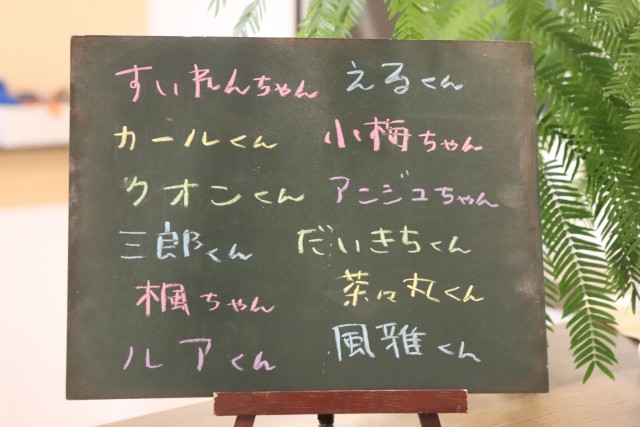 すいれんちゃん えるくん
カールくん 小梅ちゃん
クオンくん アンジュちゃん
三郎くん だいきちくん
楓ちゃん 茶々丸くん
ルアくん 風雅くん